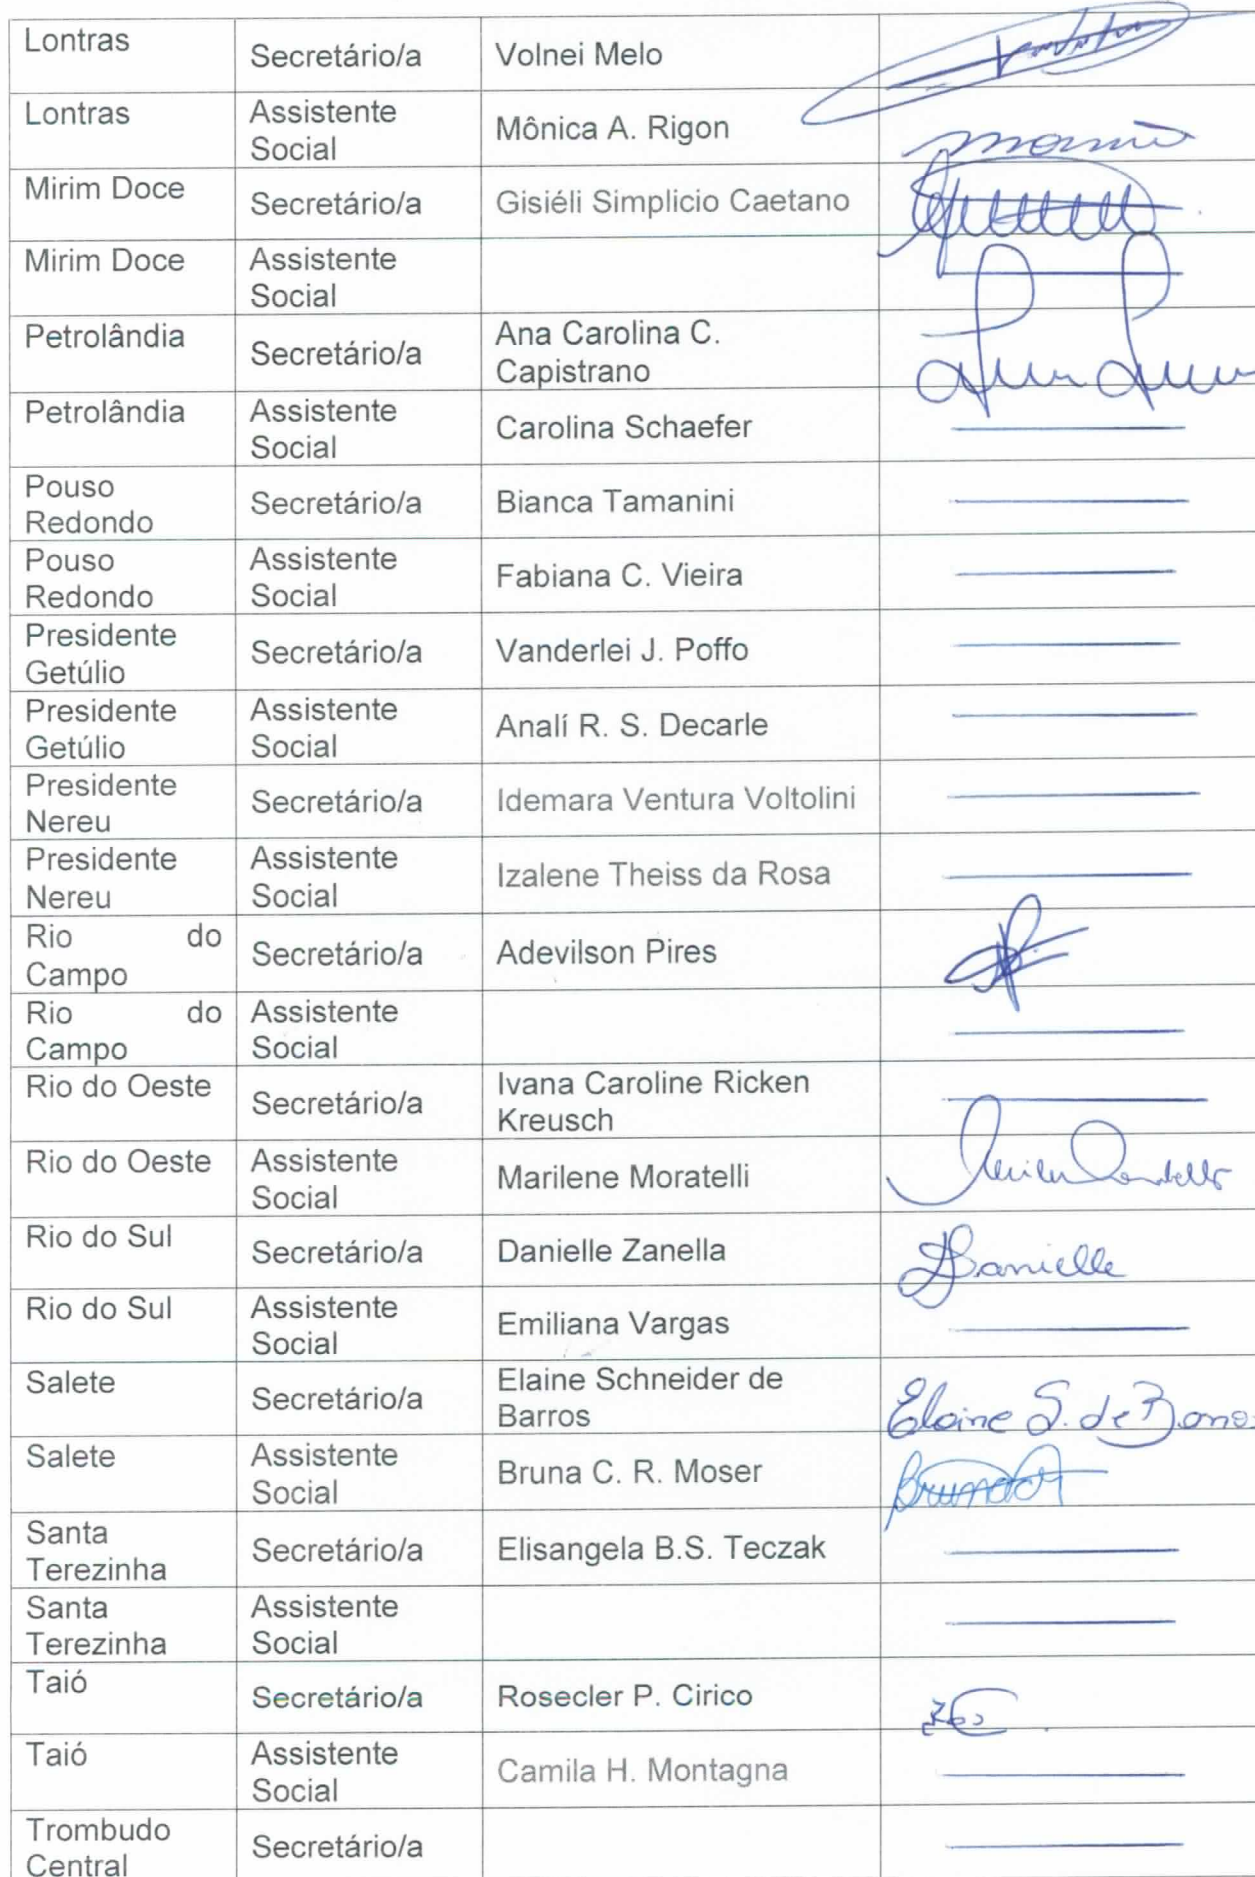 Lontras Secretário/a Volnei Melo
Lontras Assistente Social Mônica A. Rigon
Mirim Doce Secretário/a Gisiéli Simplicio Caetano
Mirim Doce Assistente Social
Petrolândia Secretário/a Ana Carolina C. Capistrano
Petrolândia Assistente Social Carolina Schaefer
Pouso Redondo Secretário/a Bianca Tamanini
Pouso Redondo Assistente Social Fabiana C. Vieira
Presidente Getúlio Secretário/a Vanderlei J. Poffo
Presidente Getúlio Assistente Social Analí R. S. Decarle
Presidente Nereu Secretário/a Idemara Ventura Voltolini
Presidente Nereu Assistente Social Izalene Theiss da Rosa
Rio do Campo Secretário/a Adevilson Pires
Rio do Campo Assistente Social
Rio do Oeste Secretário/a Ivana Caroline Ricken Kreusch
Rio do Oeste Assistente Social Marilene Moratelli
Rio do Sul Secretário/a Danielle Zanella Danielle
Rio do Sul Assistente Social Emiliana Vargas
Salete Secretário/a Elaine Schneider de Barros Elaine S. de
Salete Assistente Social Bruna C. R. Moser
Santa Terezinha Secretário/a Elisangela B.S. Teczak
Santa Terezinha Assistente Social
Taió Secretário/a Rosecler P. Cirico
Taió Assistente Social Camila H. Montagna
Trombudo Central Secretário/a